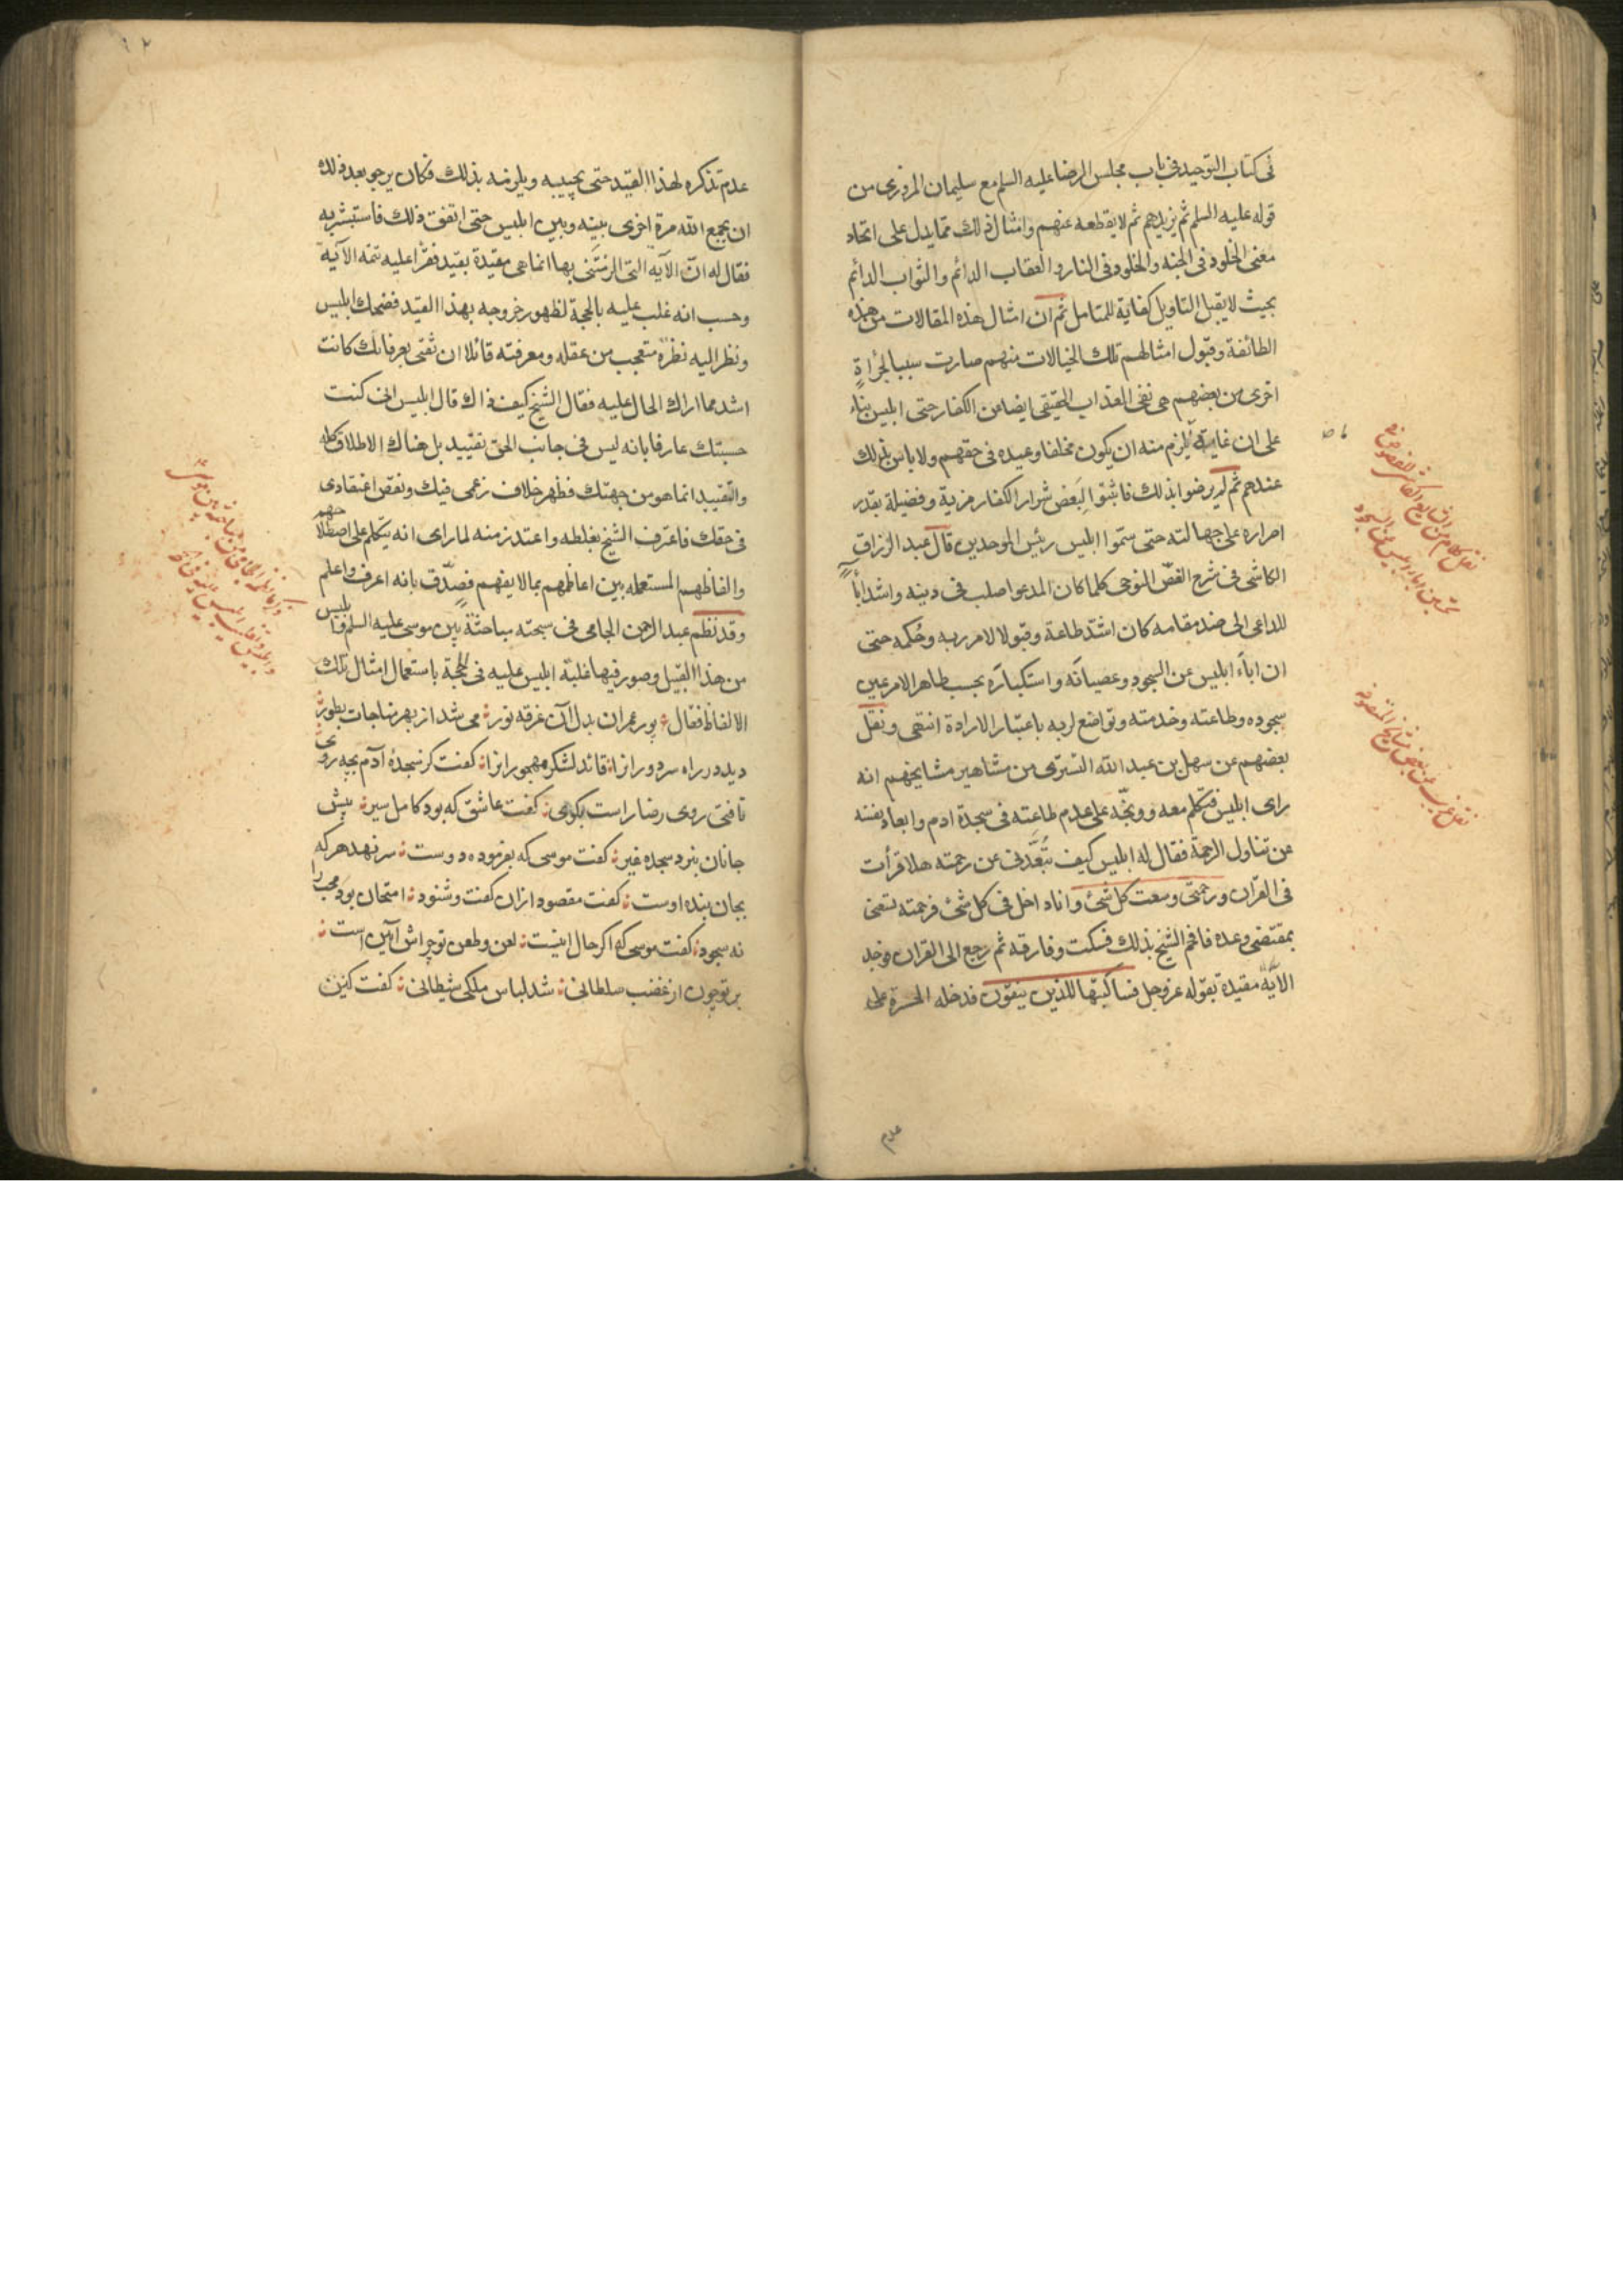 فى كتاب التوحيد فى باب مجلس الرضا عليه السلم مع سليمان المروزى من
قوله عليه السلم ثم يزيدهم ثم لا يقطعه عنهم وامثال ذلك مما يدل على اتحاد
معنى الخلود فى الجنه والخلود فى النار والعقاب الدائم والثواب الدائم
بحيث لا يقبل التاويل كفاية للمتامل ثم ان امثال هذه المقالات من هذه
الطائفة وقبول امثالهم تلك الخيالات منهم صارت سببا لجرأة
اخرى من بعضهم هى نفى العذاب الحقيقى ايضا من الكفار حتى ابليس بناء
على ان غاية ما يلزم منه ان يكون مخلفا وعيده فى حقهم ولا باس بذلك
عندهم ثم لم يرضوا بذلك فاثبتوا لبعض شرار الكفار مزية وفضيلة بقدر
اصراره على جهالته حتى سموا ابليس رئيس الموحدين قال عبد الرزاق
الكاشى فى شرح الفص النوحى كلما كان المدعو اصلب فى دينه واشد اباً
للداعى الى ضد مقامه كان اشد طاعة وقبولا لامر ربه وحكمه حتى
ان اباء ابليس عن السجود وعصيانه واستكباره بحسب ظاهر الامر عين
سجوده وطاعته وخدمته وتواضع لربه باعتبار الارادة انتهى ونقل
بعضهم عن سهل بن عبد الله التسترى من مشاهير مشايخهم انه
راى ابليس فتكلم معه ووبخه على عدم طاعته فى سجدة ادم وابعاد نفسه
عن تناول الرحمة فقال له ابليس كيف تبعدنى عن رحمته هلا قرأت
فى القران ورحمتى وسعت كل شئ وانا داخل فى كل شئ فرحمته تسعنى
بمقتضى وعده فافحم الشيخ بذلك فسكت وفارقه ثم رجع الى القران فوجد
الآية مقيدة بقوله عز وجل فسأكتبها للذين يتقون فدخله الحسرة على
عدم
عدم تذكره لهذا القيد حتى يجيبه ويلزمه بذلك فكان يرجو بعد ذلك
ان يجمع الله مرة اخرى بينه وبين ابليس حتى اتفق ذلك فاستبشر به
فقال له ان الآية التى الزمتنى بها انما هى مقيدة بقيد فقرأ عليه تتمة الآية
وحسب انه غلب عليه بالحجة لظهور خروجه بهذا القيد فضحك ابليس
ونظر اليه نظرة متعجب من عقله ومعرفته قائلا ان ثقتى بعرفانك كانت
اشد مما اراك الحال عليه فقال الشيخ كيف ذاك قال ابليس انى كنت
حسبتك عارفا بانه ليس فى جانب الحق تقييد بل هناك الاطلاق كله
والتقييد انما هو من جهتك فظهر خلاف زعمى فيك ونقص اعتقادى
فى حقك فاعترف الشيخ بغلطه واعتذر منه لما راى انه يتكلم على اصطلاحهم
والفاظهم المستعمله بين اعاظمهم بما لا يفهم فصدق بانه اعرف واعلم
وقد نظم عبد الرحمن الجامى فى سبحته مباحثة بين موسى عليه السلم وابليس
من هذا القبيل وصور فيها غلبة ابليس عليه فى الحجة باستعمال امثال تلك
الالفاظ فقال پور عمران بدل آن غرقه نور مى شد از بهر مناجات بطور
ديد در راه سر دورانرا قائد لشكر مهجورانرا كفت كز سجدۀ آدم بچه روى
تافتى روى رضا راست بكوى كفت عاشق كه بود كامل سير پيش
جانان نبرد سجده غير كفت موسى كه بفرموده دوست سر نهد هر كه
بجان بنده اوست كفت مقصود ازان كفت وشنود امتحان بود محب را
نه سجود كفت موسى كه اكر حال اينست لعن وطعن تو چراش آيين است
بر تو چون از غضب سلطانى شد لباس ملكى شيطانى كفت كين